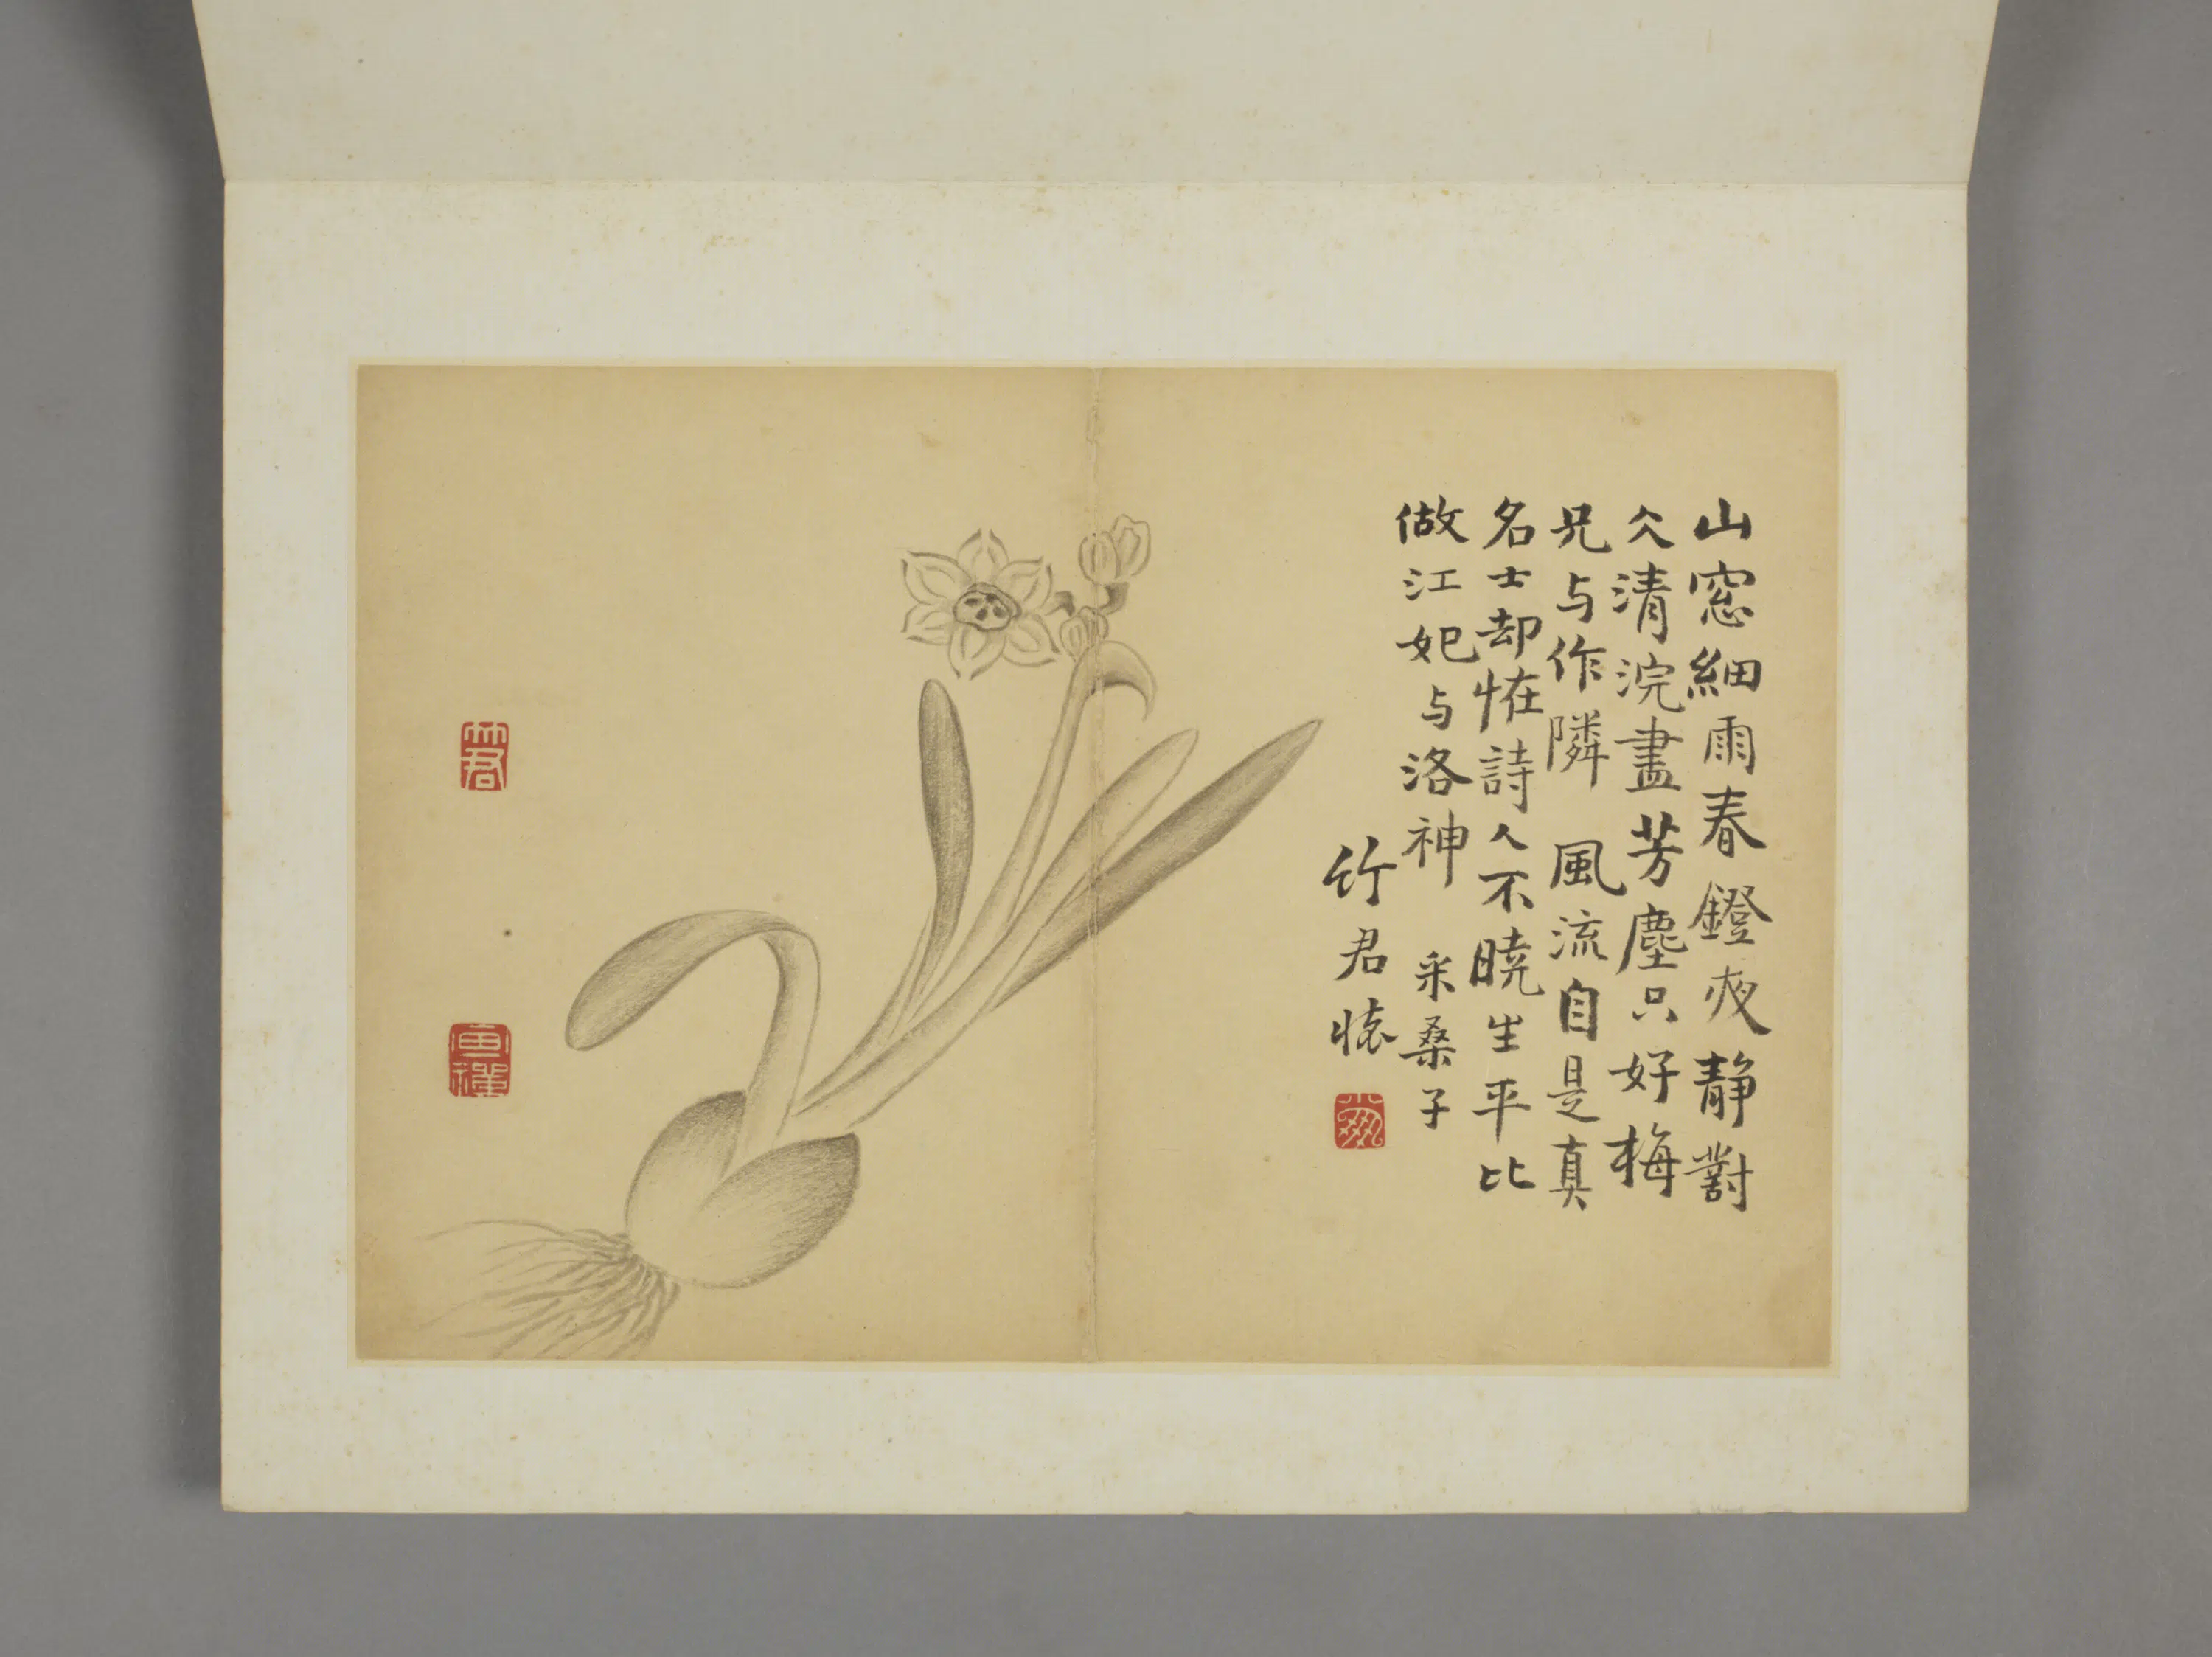 山窓細雨春鐙夜静對
仌清浣盡芳塵只好梅
兄与作隣　風流自是真
名士却恠詩人不曉生平比
做江妃与洛神　采桑子
竹君懷
竹君